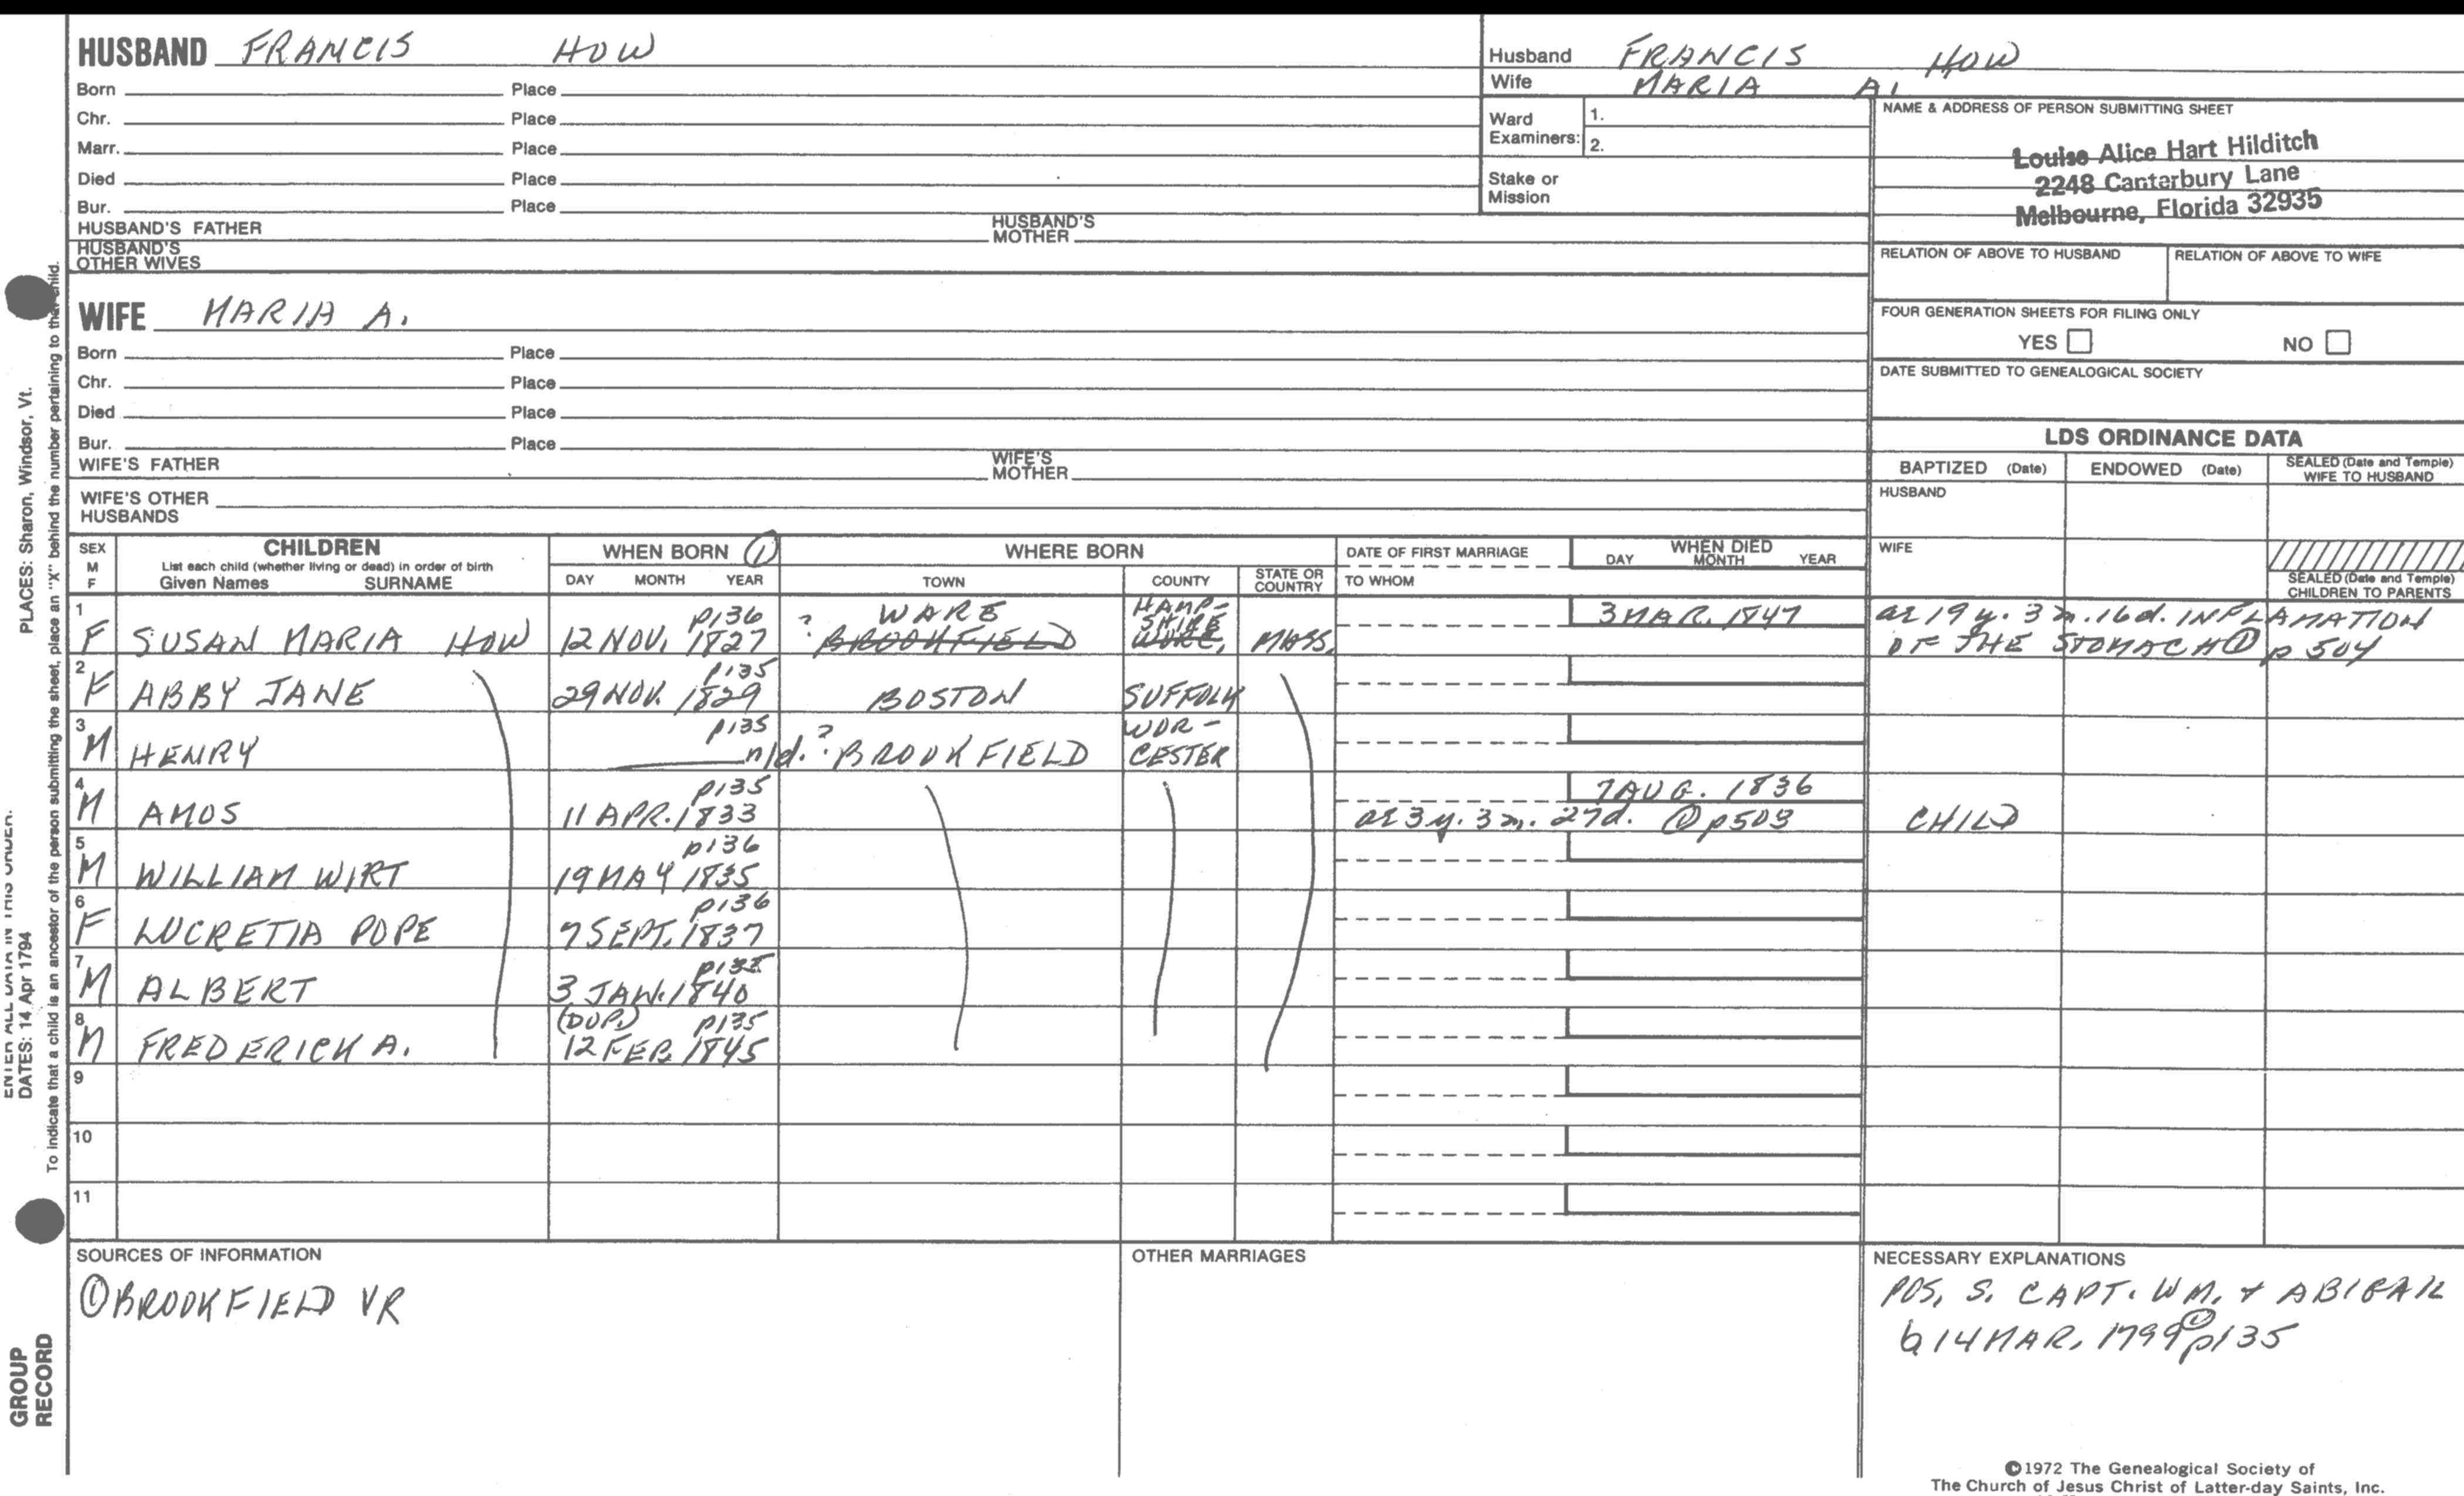 HUSBAND FRANCIS HOW
Born Place
Chr. Place
Marr. Place
Died Place
Bur. Place
HUSBAND'S FATHER HUSBAND'S MOTHER
HUSBAND'S OTHER WIVES
WIFE MARIA A.
Born Place
Chr. Place
Died Place
Bur. Place
WIFE'S FATHER WIFE'S MOTHER
WIFE'S OTHER HUSBANDS
Husband FRANCIS HOW
Wife MARIA A.
Ward Examiners: 1.
2.
Stake or Mission
NAME & ADDRESS OF PERSON SUBMITTING SHEET
Louise Alice Hart Hilditch
2248 Canterbury Lane
Melbourne, Florida 32935
RELATION OF ABOVE TO HUSBAND RELATION OF ABOVE TO WIFE
FOUR GENERATION SHEETS FOR FILING ONLY
YES NO
DATE SUBMITTED TO GENEALOGICAL SOCIETY
LDS ORDINANCE DATA
BAPTIZED (Date) ENDOWED (Date) SEALED (Date and Temple) WIFE TO HUSBAND
HUSBAND
WIFE
SEALED (Date and Temple) CHILDREN TO PARENTS
SEX M F
CHILDREN
List each child (whether living or dead) in order of birth
Given Names SURNAME
WHEN BORN ①
DAY MONTH YEAR
WHERE BORN
TOWN COUNTY STATE OR COUNTRY
DATE OF FIRST MARRIAGE
TO WHOM
WHEN DIED
DAY MONTH YEAR
1 p136 ? WARE HAMP-SHIRE 3 MAR. 1847 ae 19 y. 3 m. 16 d. INFLAMATION
F SUSAN MARIA HOW 12 NOV. 1827 BROOKFIELD WORC. MASS. OF THE STOMACH ① p 504
2 p135
F ABBY JANE 29 NOV. 1829 BOSTON SUFFOLK
3 p135 ? WOR-
M HENRY n/d. BROOKFIELD CESTER
4 p135 7 AUG. 1836
M AMOS 11 APR. 1833 ae 3 y. 3 m. 27 d. ① p503 CHILD
5 p136
M WILLIAM WIRT 19 MAY 1835
6 p136
F LUCRETIA POPE 7 SEPT. 1837
7
M ALBERT 3 JAN. 1840
8 (DUP.) p135
M FREDERICK A. 12 FEB. 1845
9
10
11
SOURCES OF INFORMATION
① BROOKFIELD VR
OTHER MARRIAGES
NECESSARY EXPLANATIONS
POS. S. CAPT. WM. + ABIGAIL
b 14 MAR. 1799 ① p135
©1972 The Genealogical Society of
The Church of Jesus Christ of Latter-day Saints, Inc.
PLACES: Sharon, Windsor, Vt.
DATES: 14 Apr 1794
To indicate that a child is an ancestor of the person submitting the sheet, place an "X" behind the number pertaining to that child.
ENTER ALL DATA IN THIS ORDER:
GROUP
RECORD